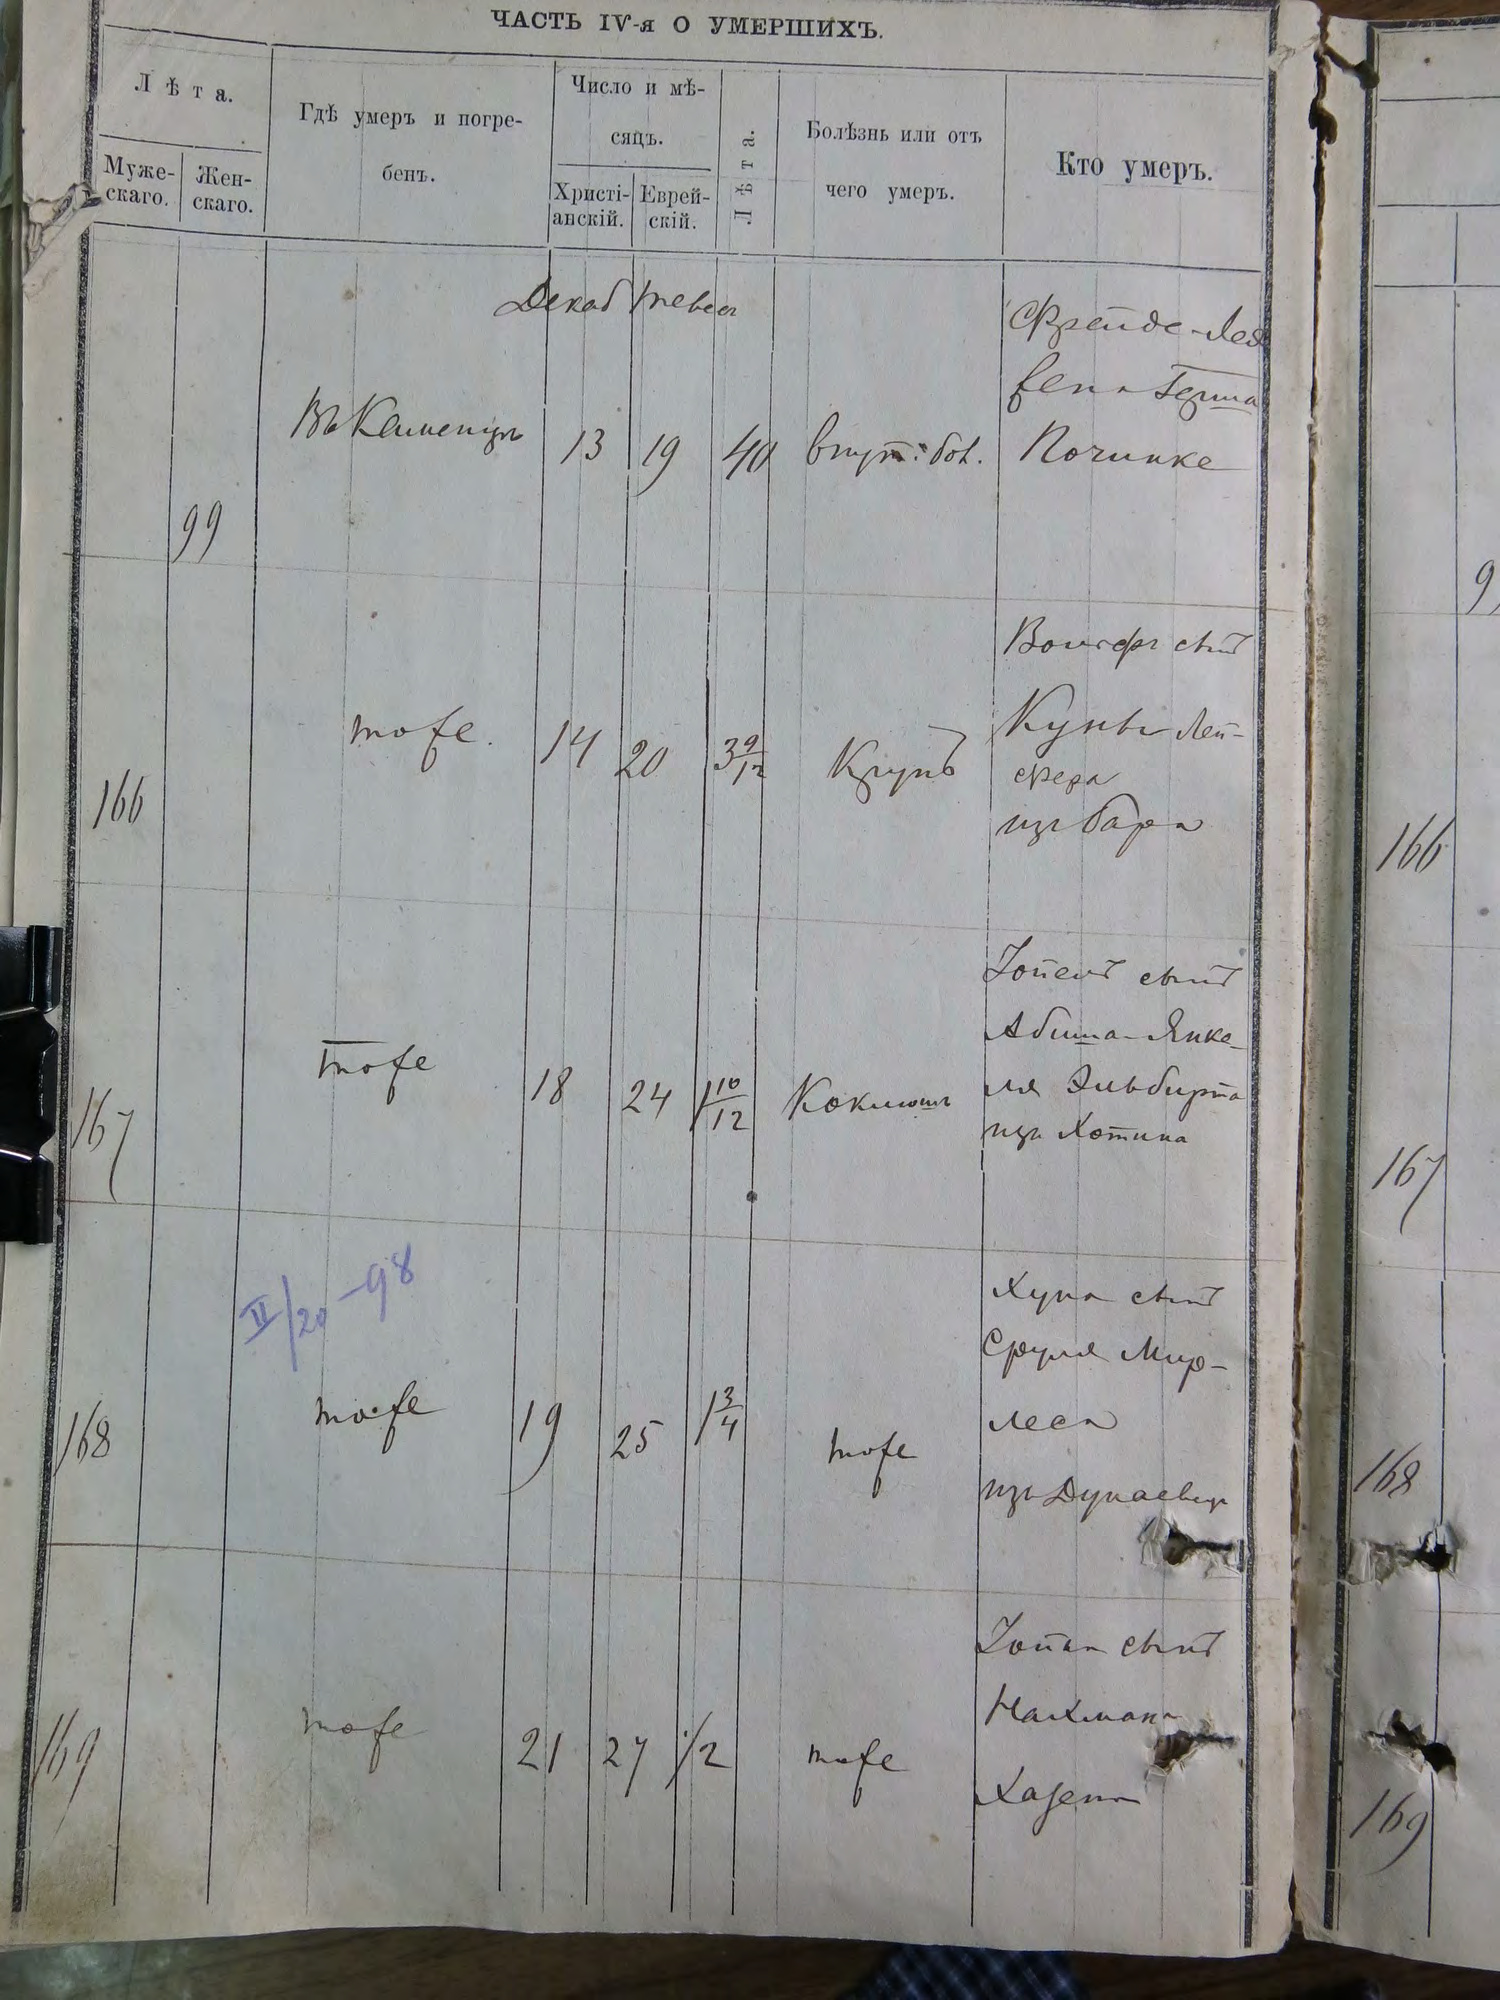 ЧАСТЬ IV-я О УМЕРШИХЪ.
Лѣта.
Муже-
скаго.
Жен-
скаго.
Гдѣ умеръ и погре-
бенъ.
Число и мѣ-
сяцъ.
Христі-
анскій.
Еврей-
скій.
Лѣта.
Болѣзнь или отъ
чего умеръ.
Кто умеръ.
Декаб Тевеса
99
Въ Каменцѣ
13
19
40
внут: бол.
Фрейде-Лея
жена Герша
Починке
166
тоже.
14
20
3 9/12
Крупъ
Вольфъ сынъ
Куны Лей-
из Бара
166
167
тоже
18
24
1 10/12
Коклюшъ
Іойелъ сынъ
Абиша-Янке-
ля Эльбирта
изъ Хотина
167
II/20-98
168
тоже
19
25
1 3/4
тоже
Хуна сынъ
Сруля Мир-
леса
изъ Дунаевцъ
168
169
тоже
21
27
1/2
тоже
Іойна сынъ
Нахмана
Хазена
169